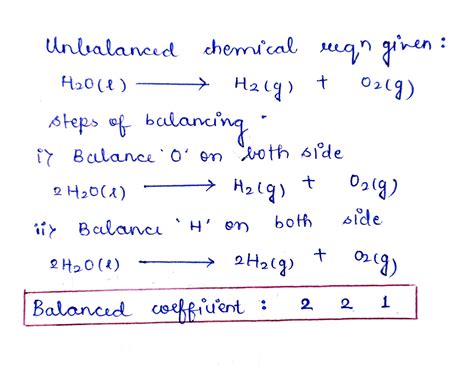 Unbalanced chemical reqn given :
H2O(l) ⟶ H2(g) + O2(g)
steps of balancing -
i> Balance 'O' on both side
2H2O(l) ⟶ H2(g) + O2(g)
ii> Balance 'H' on both side
2H2O(l) ⟶ 2H2(g) + O2(g)
Balanced coefficient : 2 2 1